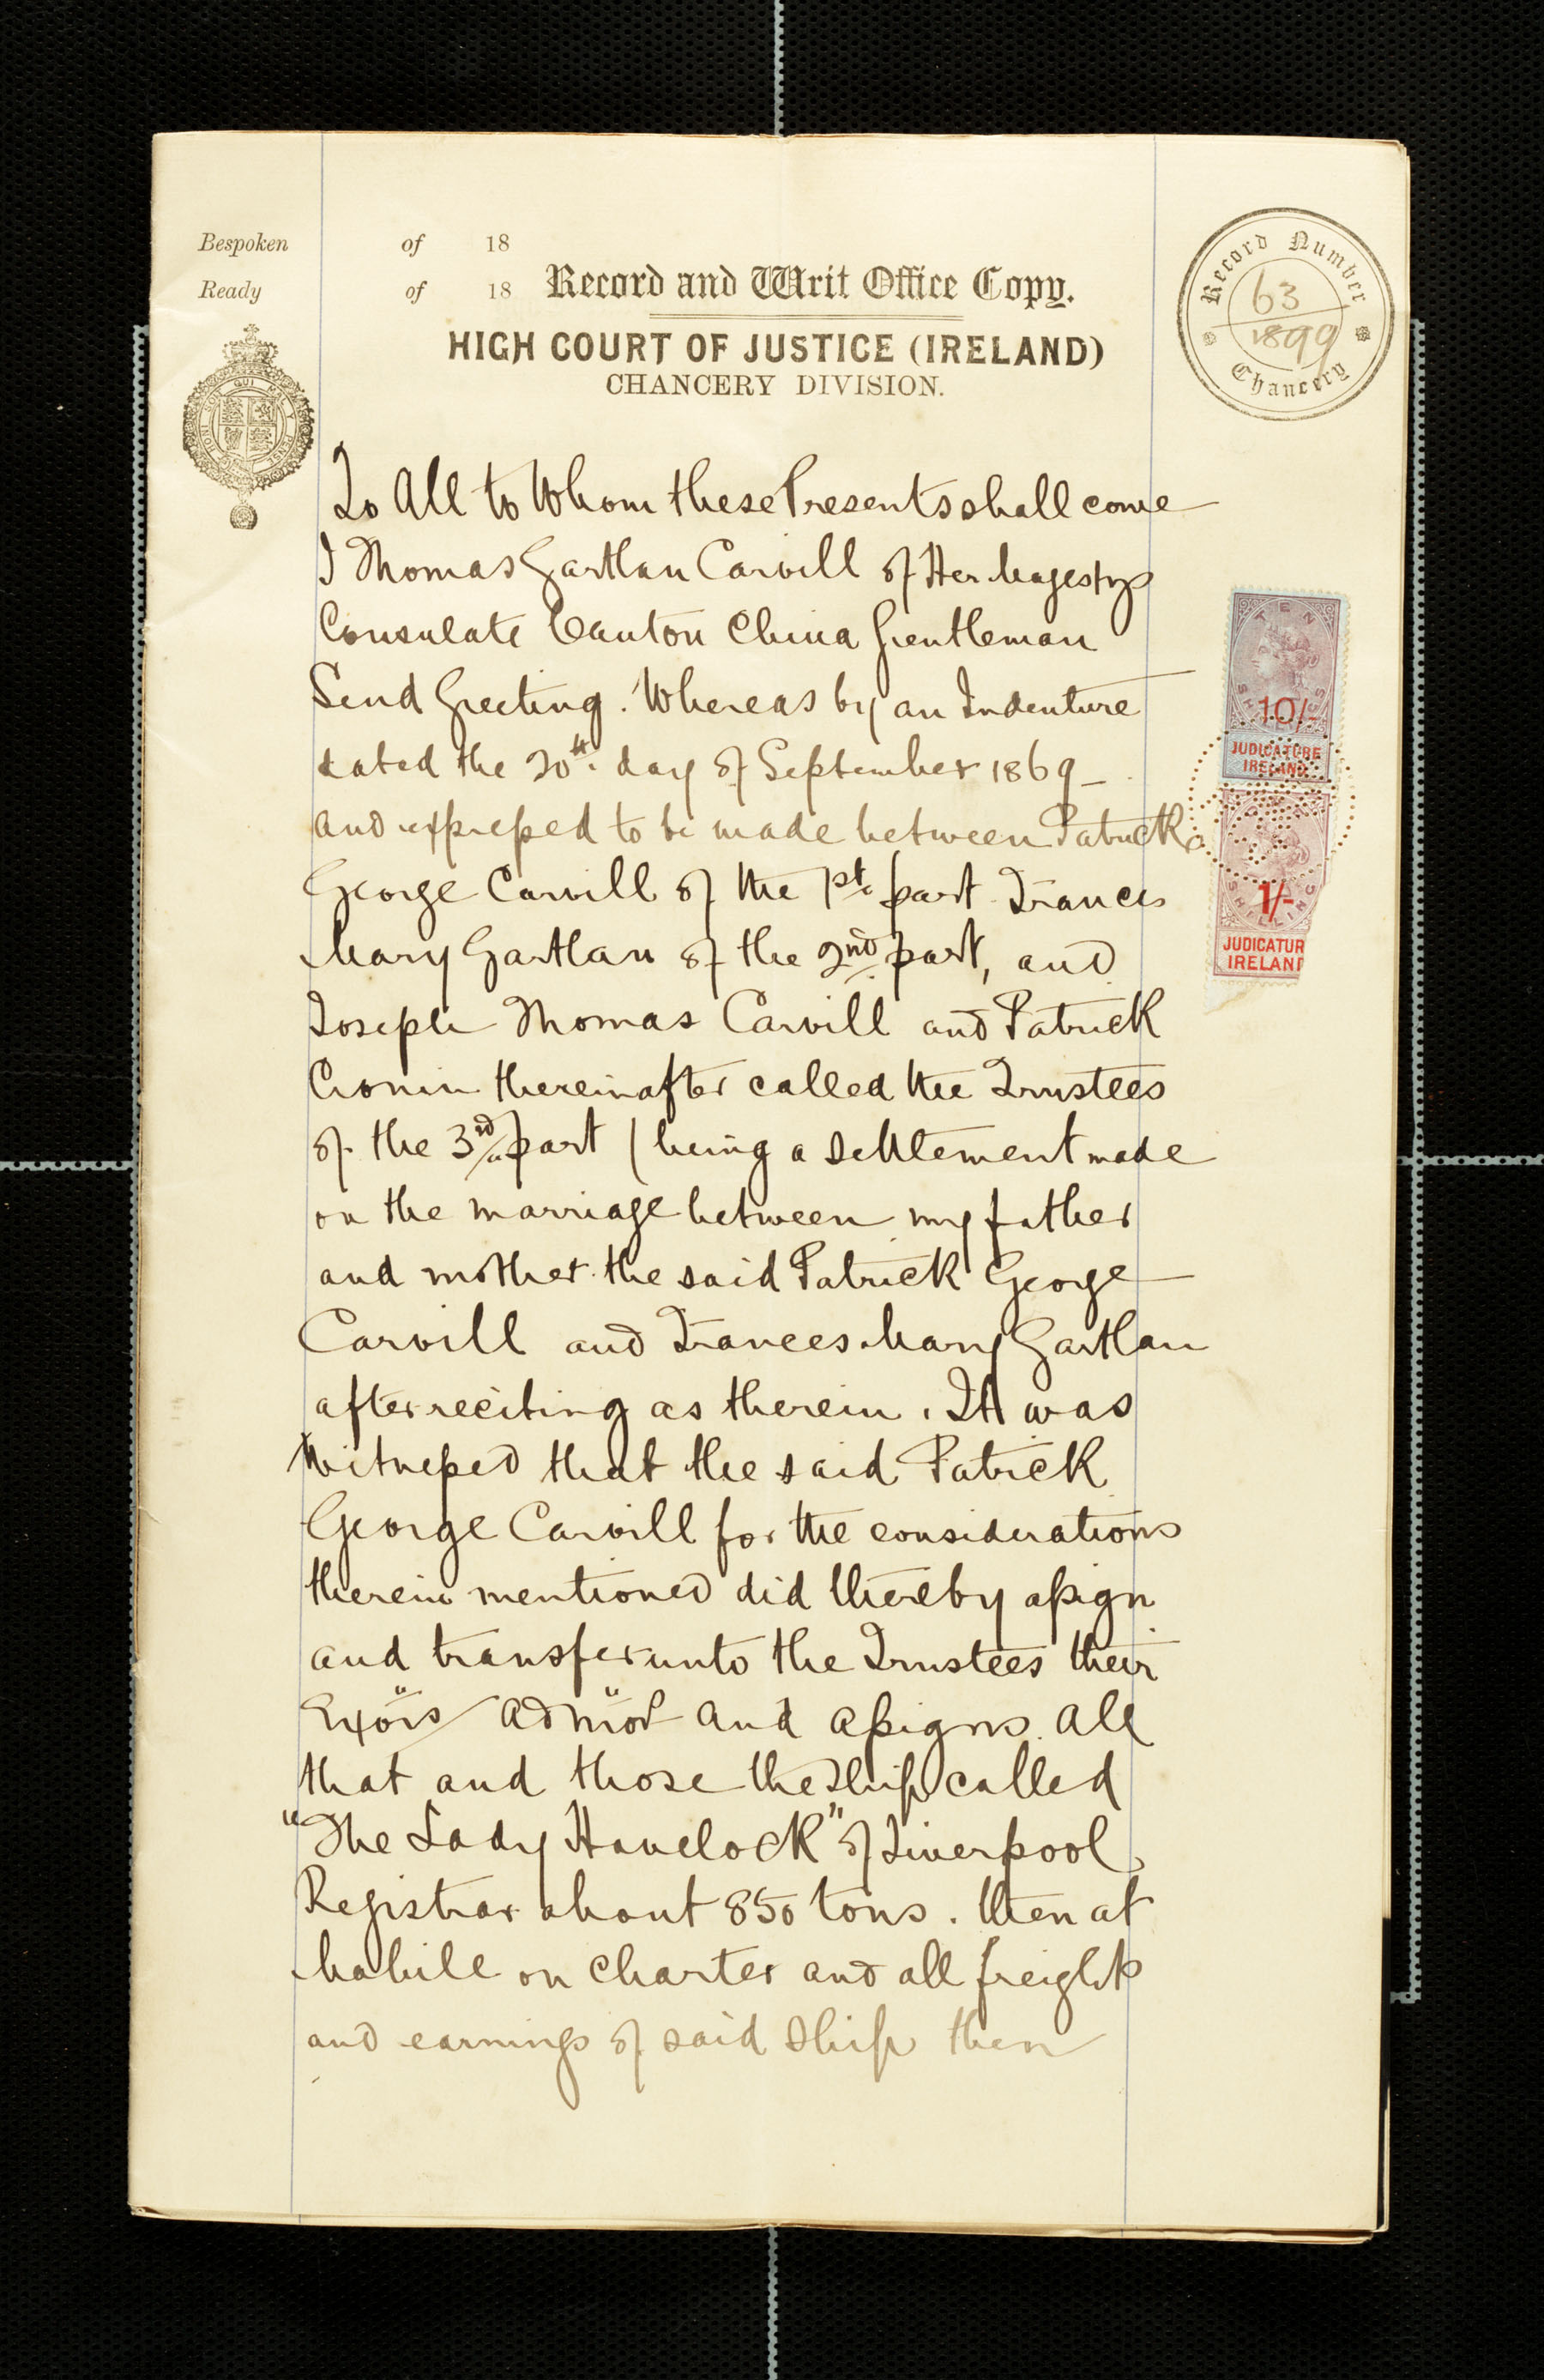 Bespoken of 18
Ready of 18
Record and Writ Office Copy.
HIGH COURT OF JUSTICE (IRELAND)
CHANCERY DIVISION.
Record Number
63
1899
Chancery
To All to Whom these Presents shall come
I Thomas Gartlan Carvill of Her Majestys
Consulate Canton China Gentleman
Send Greeting. Whereas by an Indenture
dated the 20th. day of September 1869
and expressed to be made between Patrick
George Carvill of the 1st. part Frances
Mary Gartlan of the 2nd part, and
Joseph Thomas Carvill and Patrick
Cronin thereinafter called the Trustees
of the 3rd part (being a settlement made
on the marriage between my father
and mother the said Patrick George
Carvill and Frances Mary Gartlan
after reciting as therein. It was
Witnessed that the said Patrick
George Carvill for the considerations
therein mentioned did thereby assign
and transfer unto the Trustees their
Exors Admors and assigns. all
that and those the Ship called
"The Lady Havelock" of Liverpool
Registrar about 850 tons. then at
Mobile on Charter and all freights
and earnings of said Ship then
TEN
SHILLINGS
10/-
JUDICATURE
IRELAND
SHILLING
1/-
JUDICATUR
IRELAND